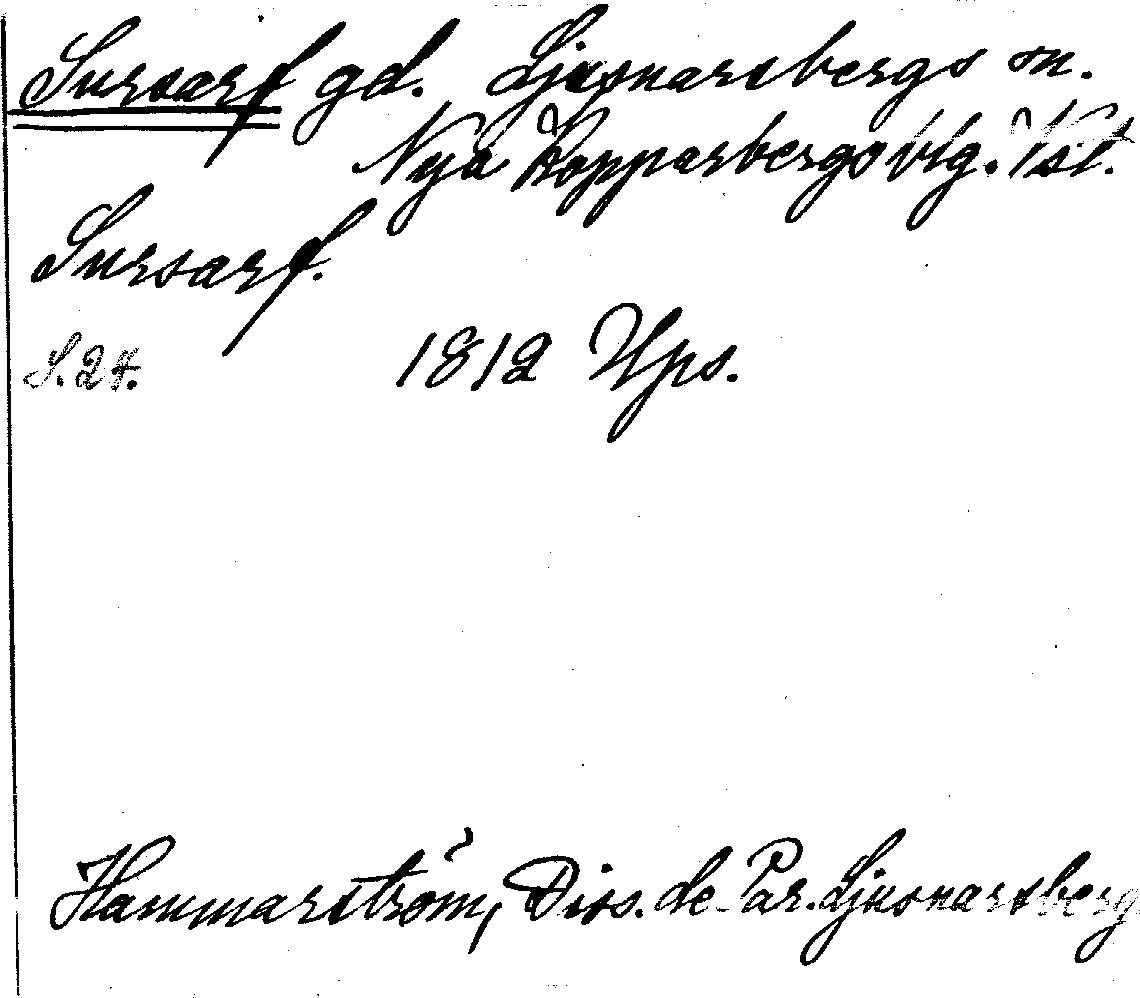 Sursarf gd. Ljusnarsbergs sn.
Nya Kopparbergs btg. Vsl.
Sursarf.
S. 24. 1812 Ups.
Hammarström, Diss. de Par. Ljusnarsberg